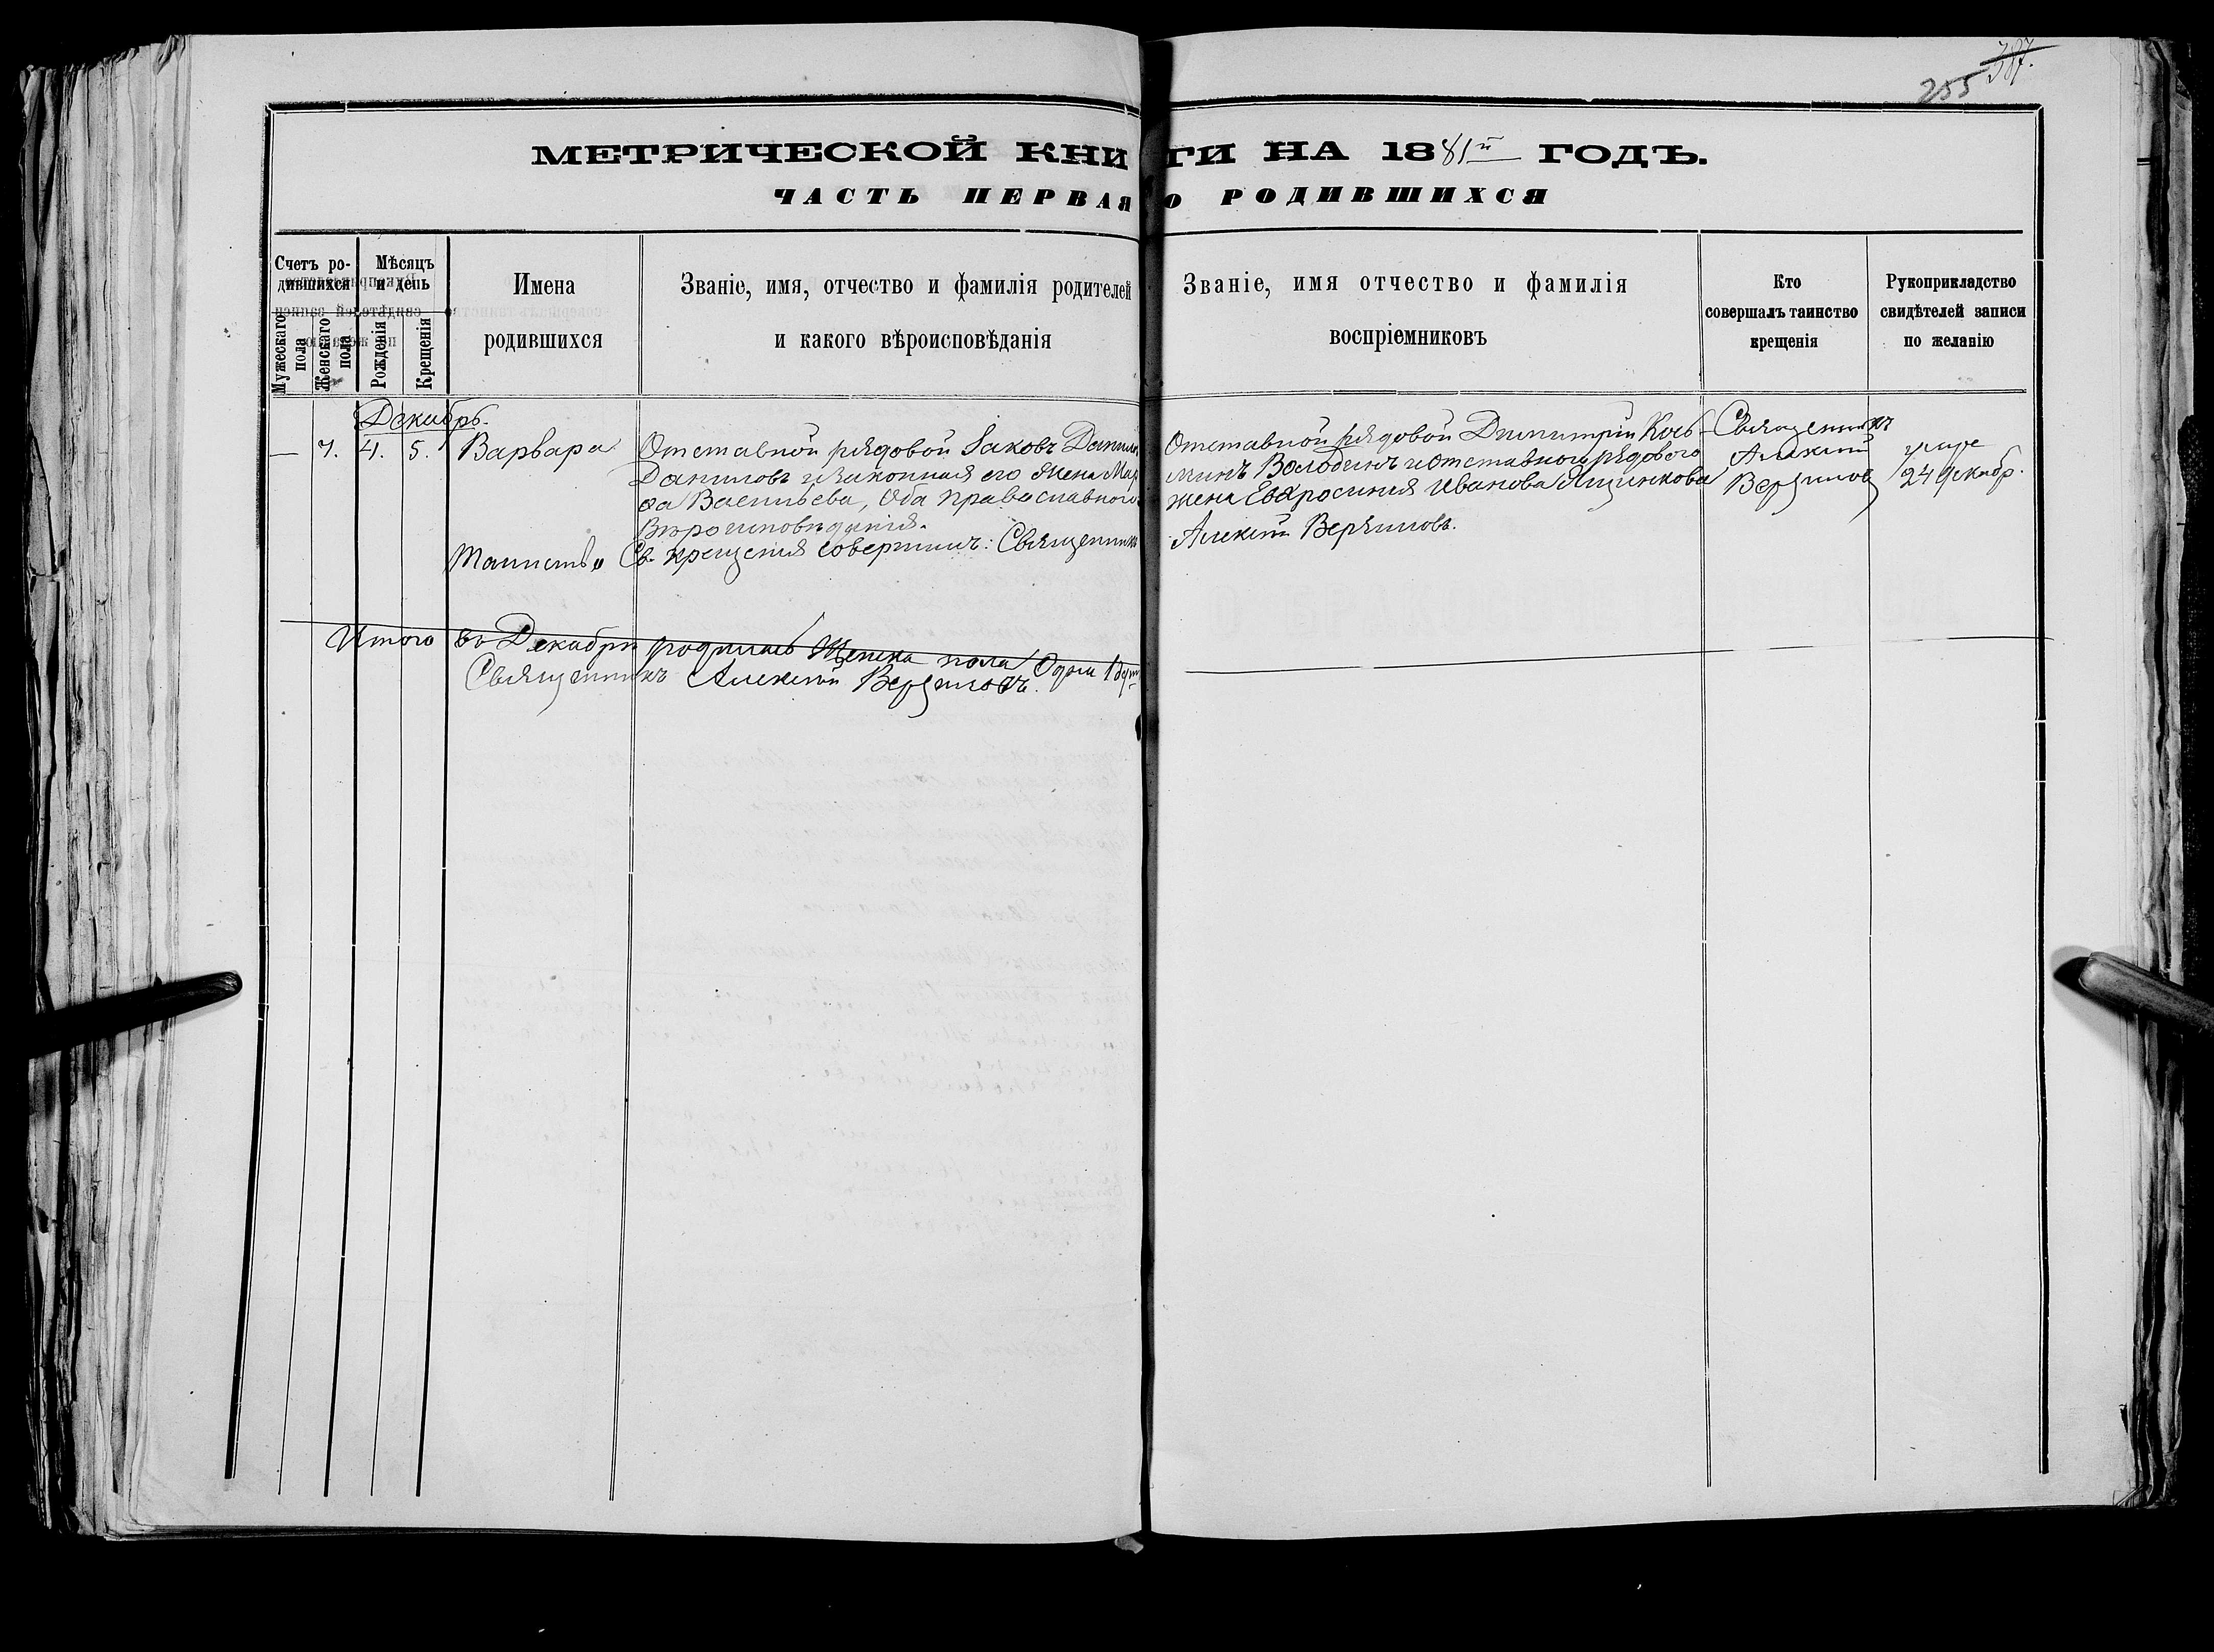 387.
255
МЕТРИЧЕСКОЙ КНИГИ НА 1881й ГОДЪ.
ЧАСТЬ ПЕРВАЯ О РОДИВШИХСЯ
Счетъ родившихся
Мужескаго пола
Женскаго пола
Мѣсяцъ и день
Рожденія
Крещенія
Имена
родившихся
Званіе, имя, отчество и фамилія родителей
и какого вѣроисповѣданія
Званіе, имя отчество и фамилія
воспріемниковъ
Кто
совершалъ таинство
крещенія
Рукоприкладство
свидѣтелей записи
по желанію
Декабрь.
— 7. 4. 5. Варвара
Отставной рядовой Іаковъ
Даниловъ и законная его жена Мар
ѳа Васильева, Оба православнаго
вѣроисповѣданія.
Отставной рядовой Димитрій Кось-
минъ Володинъ и отставного рядового
жена Евфросинія Иванова
Священникъ
Алексій
24 декабр.
Таинство Св. крещенія совершилъ: Священникъ Алексій
Итого въ Декабрѣ родилась женска пола Одна
Священникъ Алексій